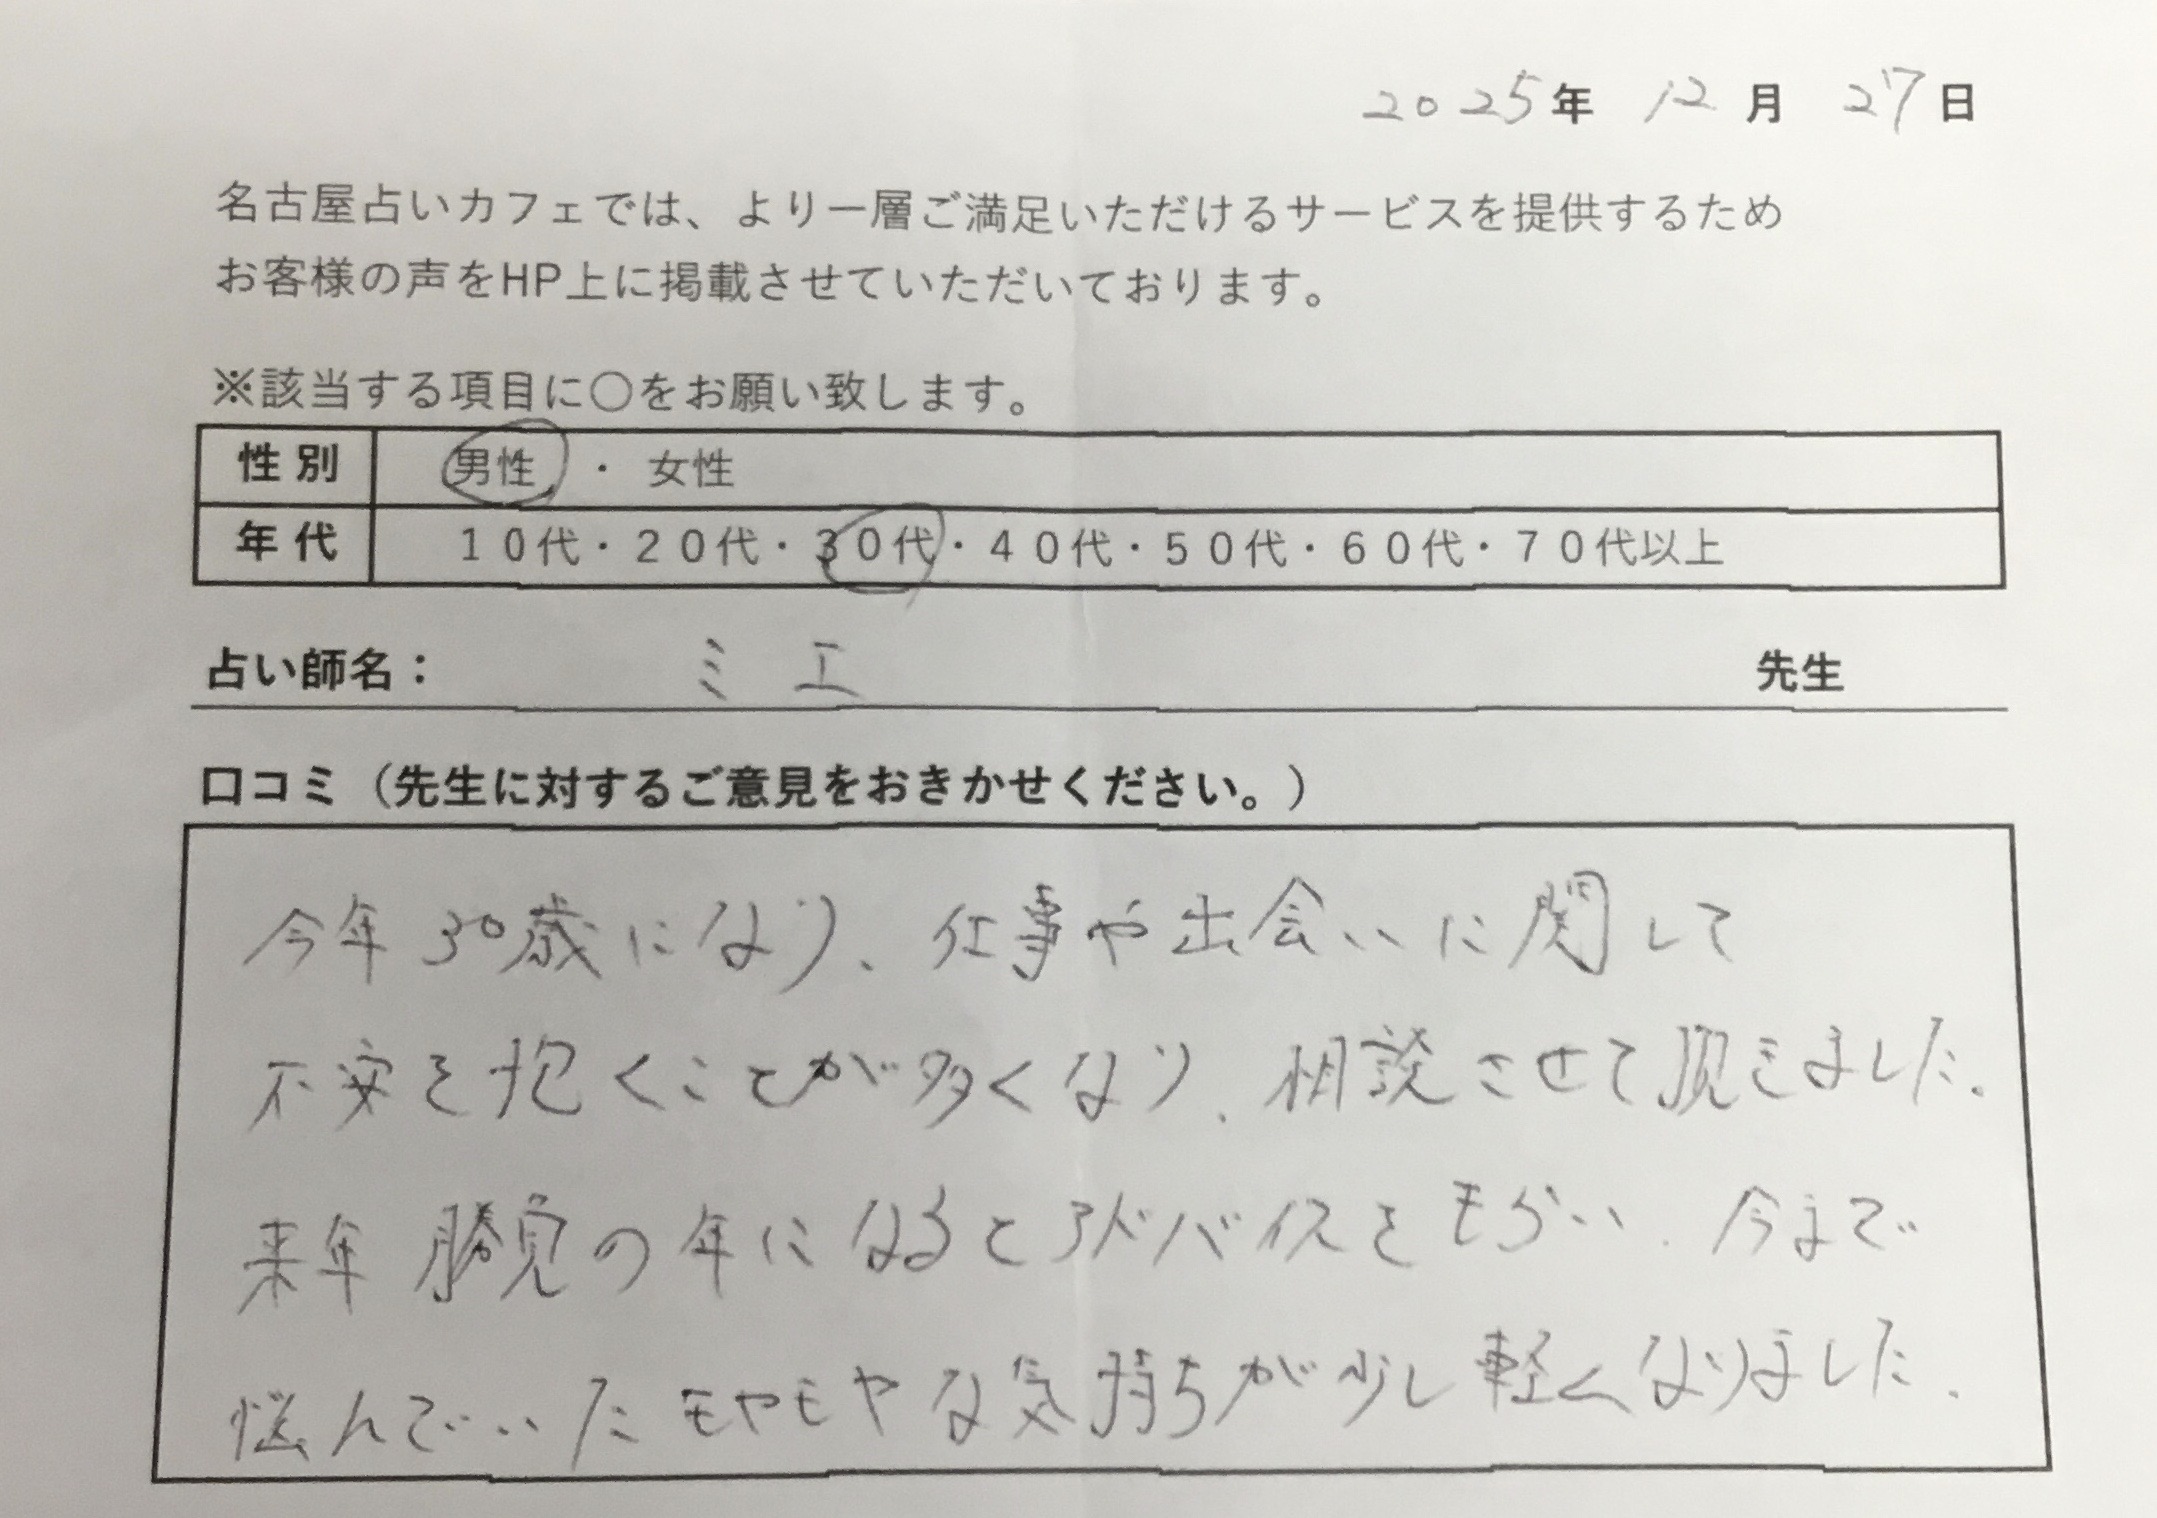 2025年 12月 27日
名古屋占いカフェでは、より一層ご満足いただけるサービスを提供するため
お客様の声をHP上に掲載させていただいております。
※該当する項目に○をお願い致します。
性別 男性 ・ 女性
年代 10代・20代・30代・40代・50代・60代・70代以上
占い師名： ミエ 先生
口コミ（先生に対するご意見をおきかせください。）
今年30歳になり、仕事や出会いに関して
不安を抱くことが多くなり、相談させて頂きました。
来年勝負の年になるとアドバイスをもらい、今まで
悩んでいたモヤモヤな気持ちが少し軽くなりました。